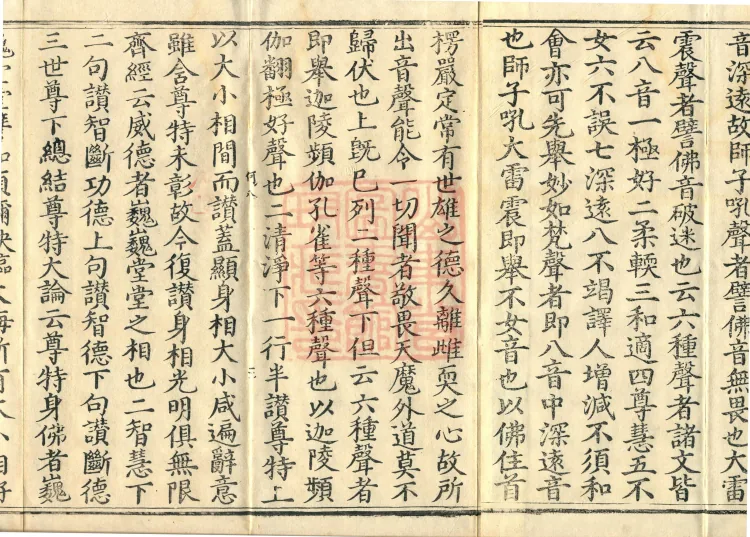 音深遠故師子吼聲者譬佛音無畏也大雷
震聲者譬佛音破迷也云六種聲者諸文皆
云八音一極好二柔輭三和適四尊慧五不
女六不誤七深遠八不竭譯人增減不須和
會亦可先舉妙如梵聲者即八音中深遠音
也師子吼大雷震即舉不女音也以佛住首
楞嚴定常有世雄之德久離雌耎之心故所
出音聲能令一切聞者敬畏天魔外道莫不
歸伏也上旣已列二種聲下但云六種聲者
即舉迦陵頻伽孔雀等六種聲也以迦陵頻
伽翻極好聲也二清淨下一行半讃尊特上
何八
二
以大小相間而讃蓋顯身相大小咸遍辭意
雖含尊特未彰故今復讃身相光明俱無限
齊經云威德者巍巍堂堂之相也二智慧下
二句讃智斷功德上句讃智德下句讃斷德
三世尊下總結尊特大論云尊特身佛者巍
巍堂堂